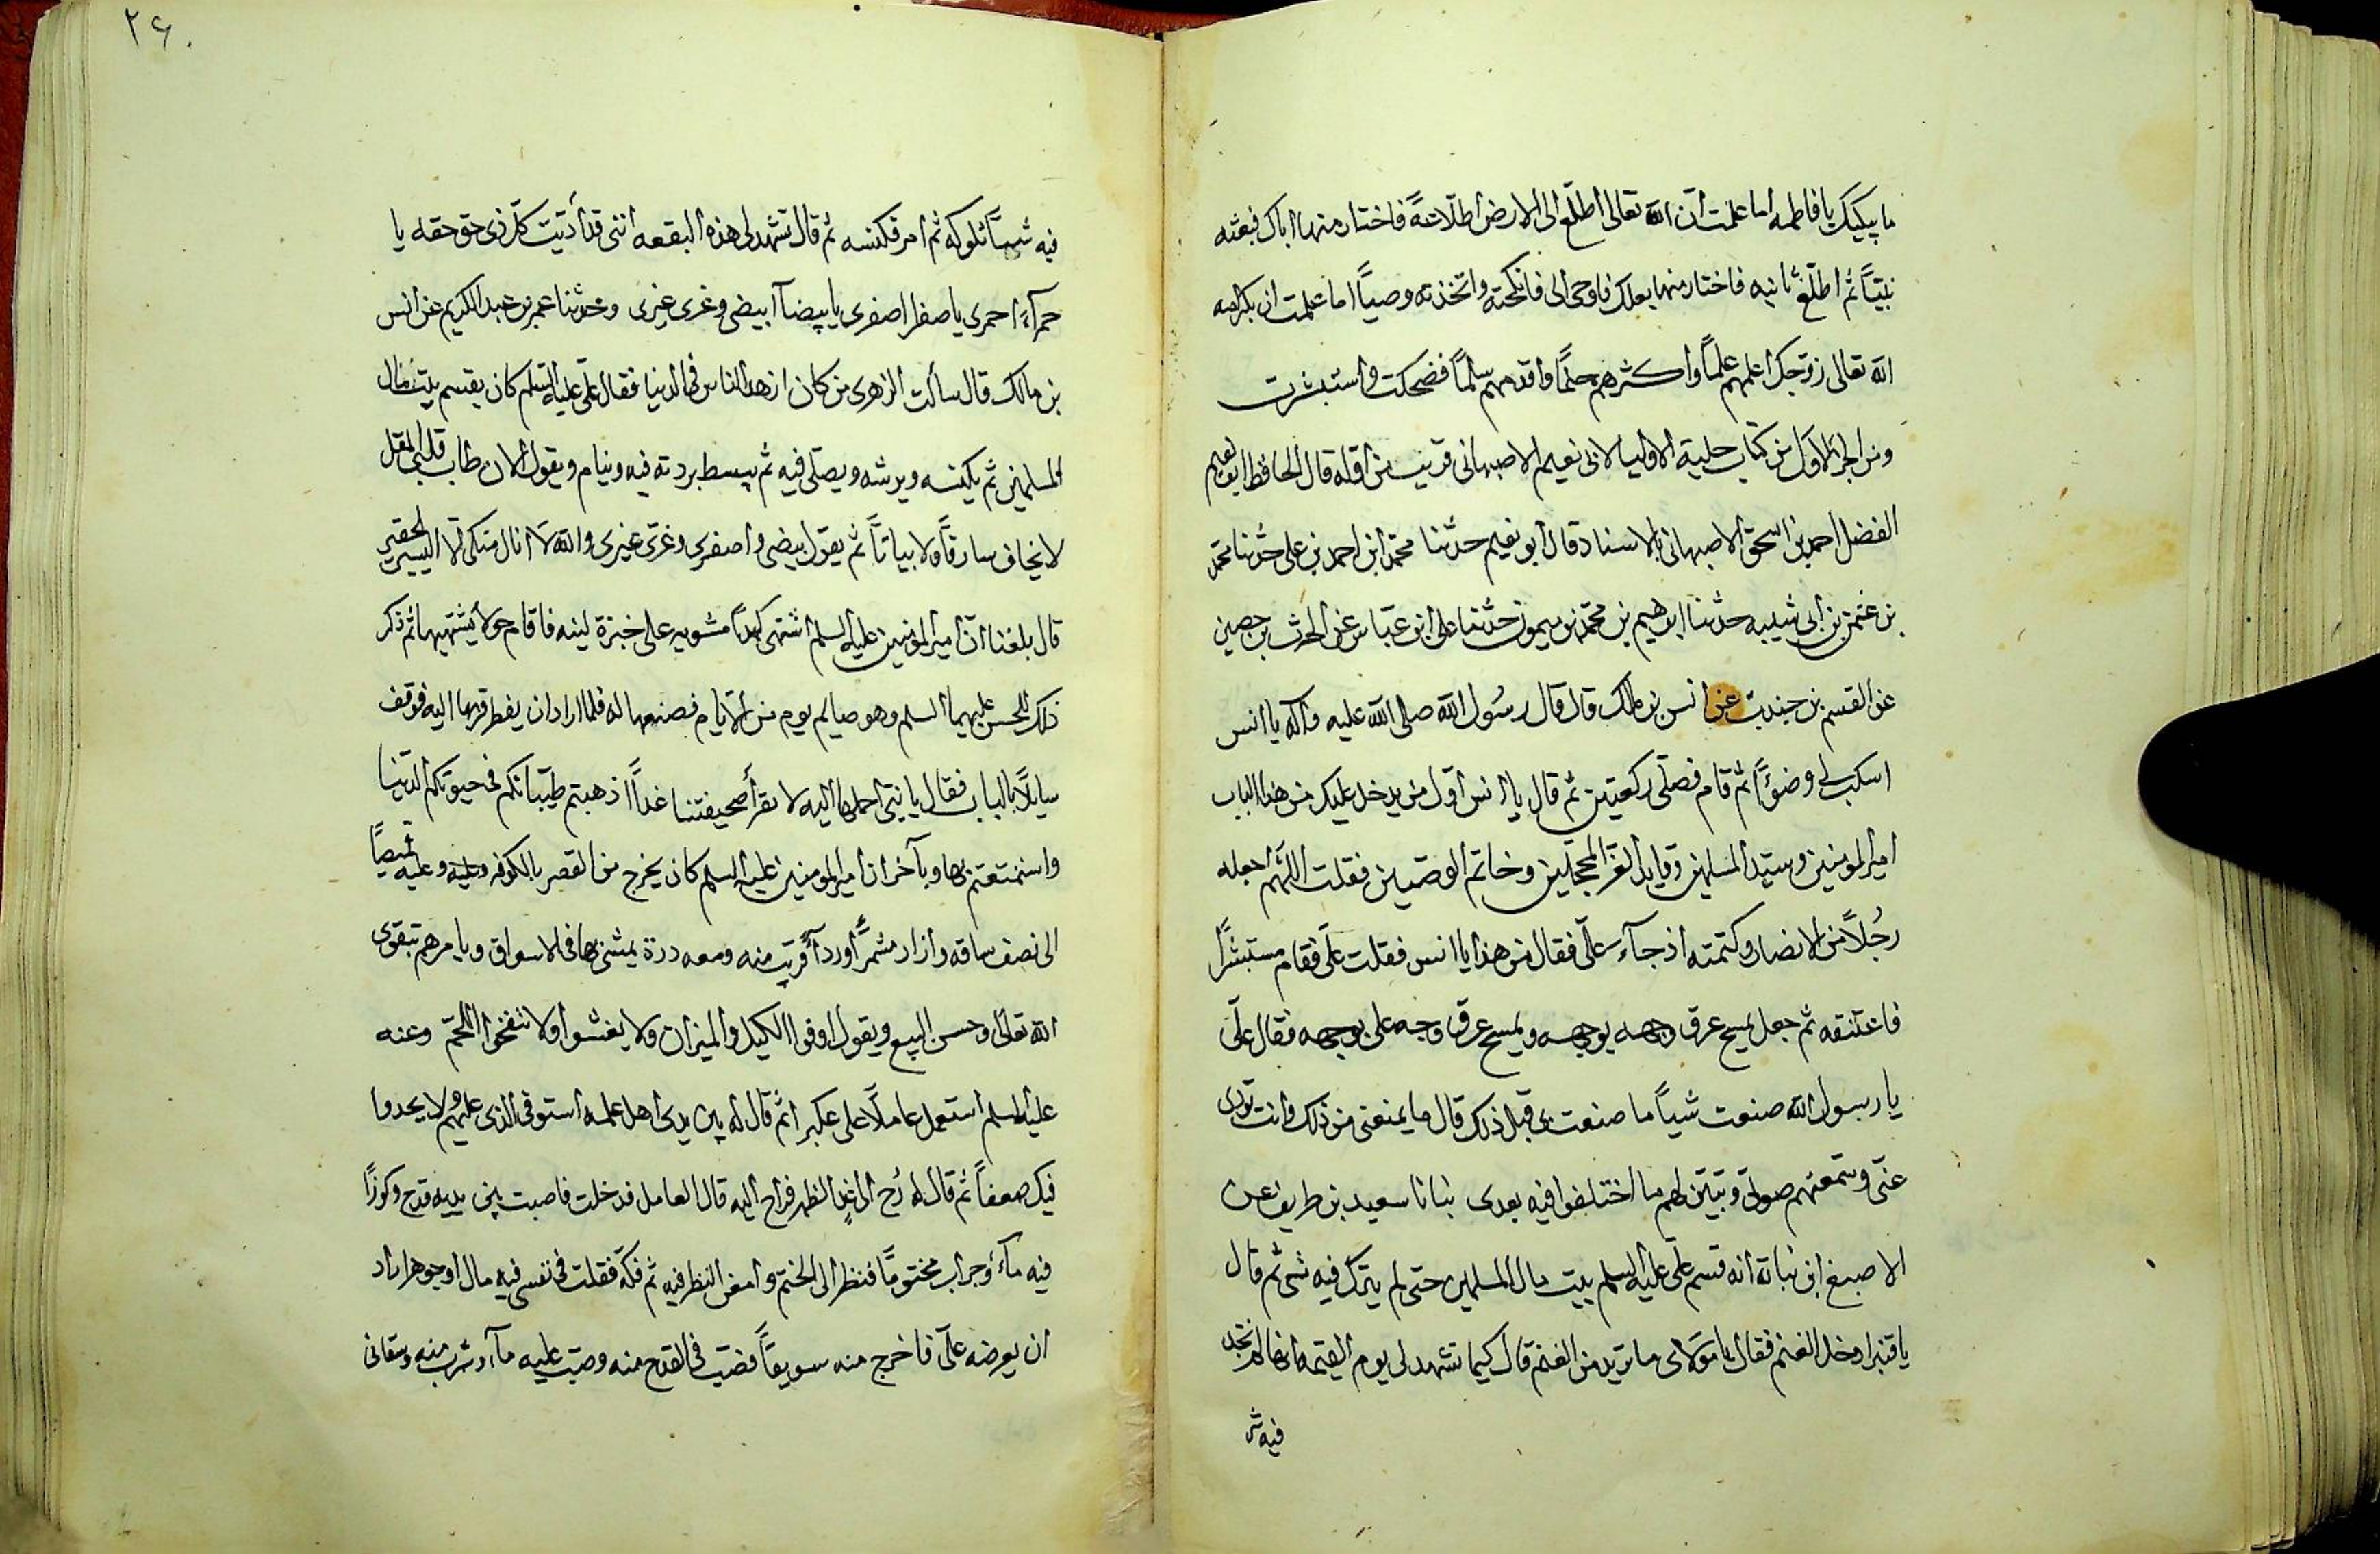 ما يبكيك يا فاطمه اما علمت ان الله تعالى اطلع الى الارض اطلاعةً فاختار منها اباك فبعثه
نبيّاً ثم اطلع ثانيه فاختار منها بعلك فاوحى الى فانكحته واتخذته وصيّاً اما علمت ان بكرامه
الله تعالى زوّجك اعلمهم علماً واكثرهم حلماً واقدمهم سلماً فضحكت واستبشرت
ومن الجزء الاول من كتاب حلية الاوليا لابى نعيم الاصبهانى قريب من اوله قال الحافظ ابو نعيم
الفضل احمد بن اسحق الاصبهانى بالاسناد قال ابو نعيم حدثنا محمّد ابن احمد بن على حدثنا محمّد
بن عثمن بن ابى شيبه حدثنا ابرهيم بن محمّد بن ميمون حدثنا على ابن عبّاس عن الحرث بن حصين
عن القسم بن جندب عن انس بن مالك قال قال رسُول الله صلى الله عليه واله يا انس
اسكب لى وضوءًا ثم قام فصلّى ركعتين ثم قال يا انس اوّل من يدخل عليك من هذا الباب
امير المومنين وسيّد المسلمين وقايد الغرّ المحجّلين وخاتم الوصيين فقلت اللّهم اجعله
رجُلاً من الانصار وكتمته اذ جآء علىّ فقال من هذا يا انس فقلت علىّ فقام مستبشراً
فاعتنقه ثم جعل يمسح عرق وجهه بوجهه ويمسح عرق وجه على بوجهه فقال علىّ
يا رسول الله صنعت شياً ما صنعت بى قبل ذلك قال ما يمنعنى من ذلك وانت تودى
عنّى وتسمعهم صوتى وتبيّن لهم ما اختلفوا فيه بعدى نبانا سعيد بن طريف عن
الاصبغ ابن نباته انه قسم علىّ عليه السلم بيت مال المسلمين حتى لم يترك فيه شى ثم قال
يا قنبر ادخل الغنم فقال يا مولاى ما تريد من الغنم قال كيما تشهد لى يوم القيمه انها لم تجد
فيه ش
٢٦٠
فيه شياً تلوكه ثم امر فكنسه ثم قال تشهد لى هذه البقعه اننى قد أدّيت كلّ ذى حق حقه يا
حمرآء احمرى يا صفرا اصفرى يا بيضآ ابيضى وغرى غيرى وحدثنا عمر بن عبد الكريم عن انس
بن مالك قال سألت الزهرى من كان ازهد الناس فى الدنيا فقال علىّ عليه السلم كان يقسم بيت مال
المسلمين ثم يكنسه ويرشه ويصلى فيه ثم يبسط بردته فيه وينام ويقول الان طاب قلبى المقل
لا يخاف سارقاً ولا بياتاً ثم يقول ابيضى واصفرى وغرّى غيرى والله لا انال منكى الا اليسير الحقير
قال بلغنا انّ امير المومنين عليه السلم اشتهى كبداً مشويه على خبزة لينه فاقام حولا يشتهيها ثم ذكر
ذلك للحسن عليهما السلم وهو صايم يوم من الايام فصنعها له فلما اراد ان يفطر قربها اليه فوقف
سايلاً بالباب فقال يا بنىّ احملها اليه لا نقرأ صحيفتنا غداً اذهبتم طيّباتكم فى حيوتكم الدنيا
واستمتعتم بها وبآخر ان امير المومنين عليه السلم كان يخرج من القصر بالكوفه وعليه قميصاً
الى نصف ساقه وازار مشمّر أوردآً قريب منه ومعه درة يمشى بها فى الاسواق ويامرهم بتقوى
الله تعالى وحسن البيع ويقول اوفوا الكيل والميزان ولا يغشوا ولا تنفخوا اللحم وعنه
عليه السلم استعمل عاملاً على عكبرا ثم قال له بين يدى اهل عمله استوفى الذى عليهم ولا يجدوا
فيك ضعفاً ثم قال له رُح الى غد الظهر فراح اليه قال العامل فدخلت فاصبت بين يديه قدح وكوزاً
فيه مآءً وجراب مختوماً فنظر الى الختم وامعن النظر فيه ثم فكّه فقلت فى نفسى فيه مال او جوهر اراد
ان يعرضه علىّ فاخرج منه سويقاً فصب فى القدح منه وصب عليه مآء وشرب منه وسقانى